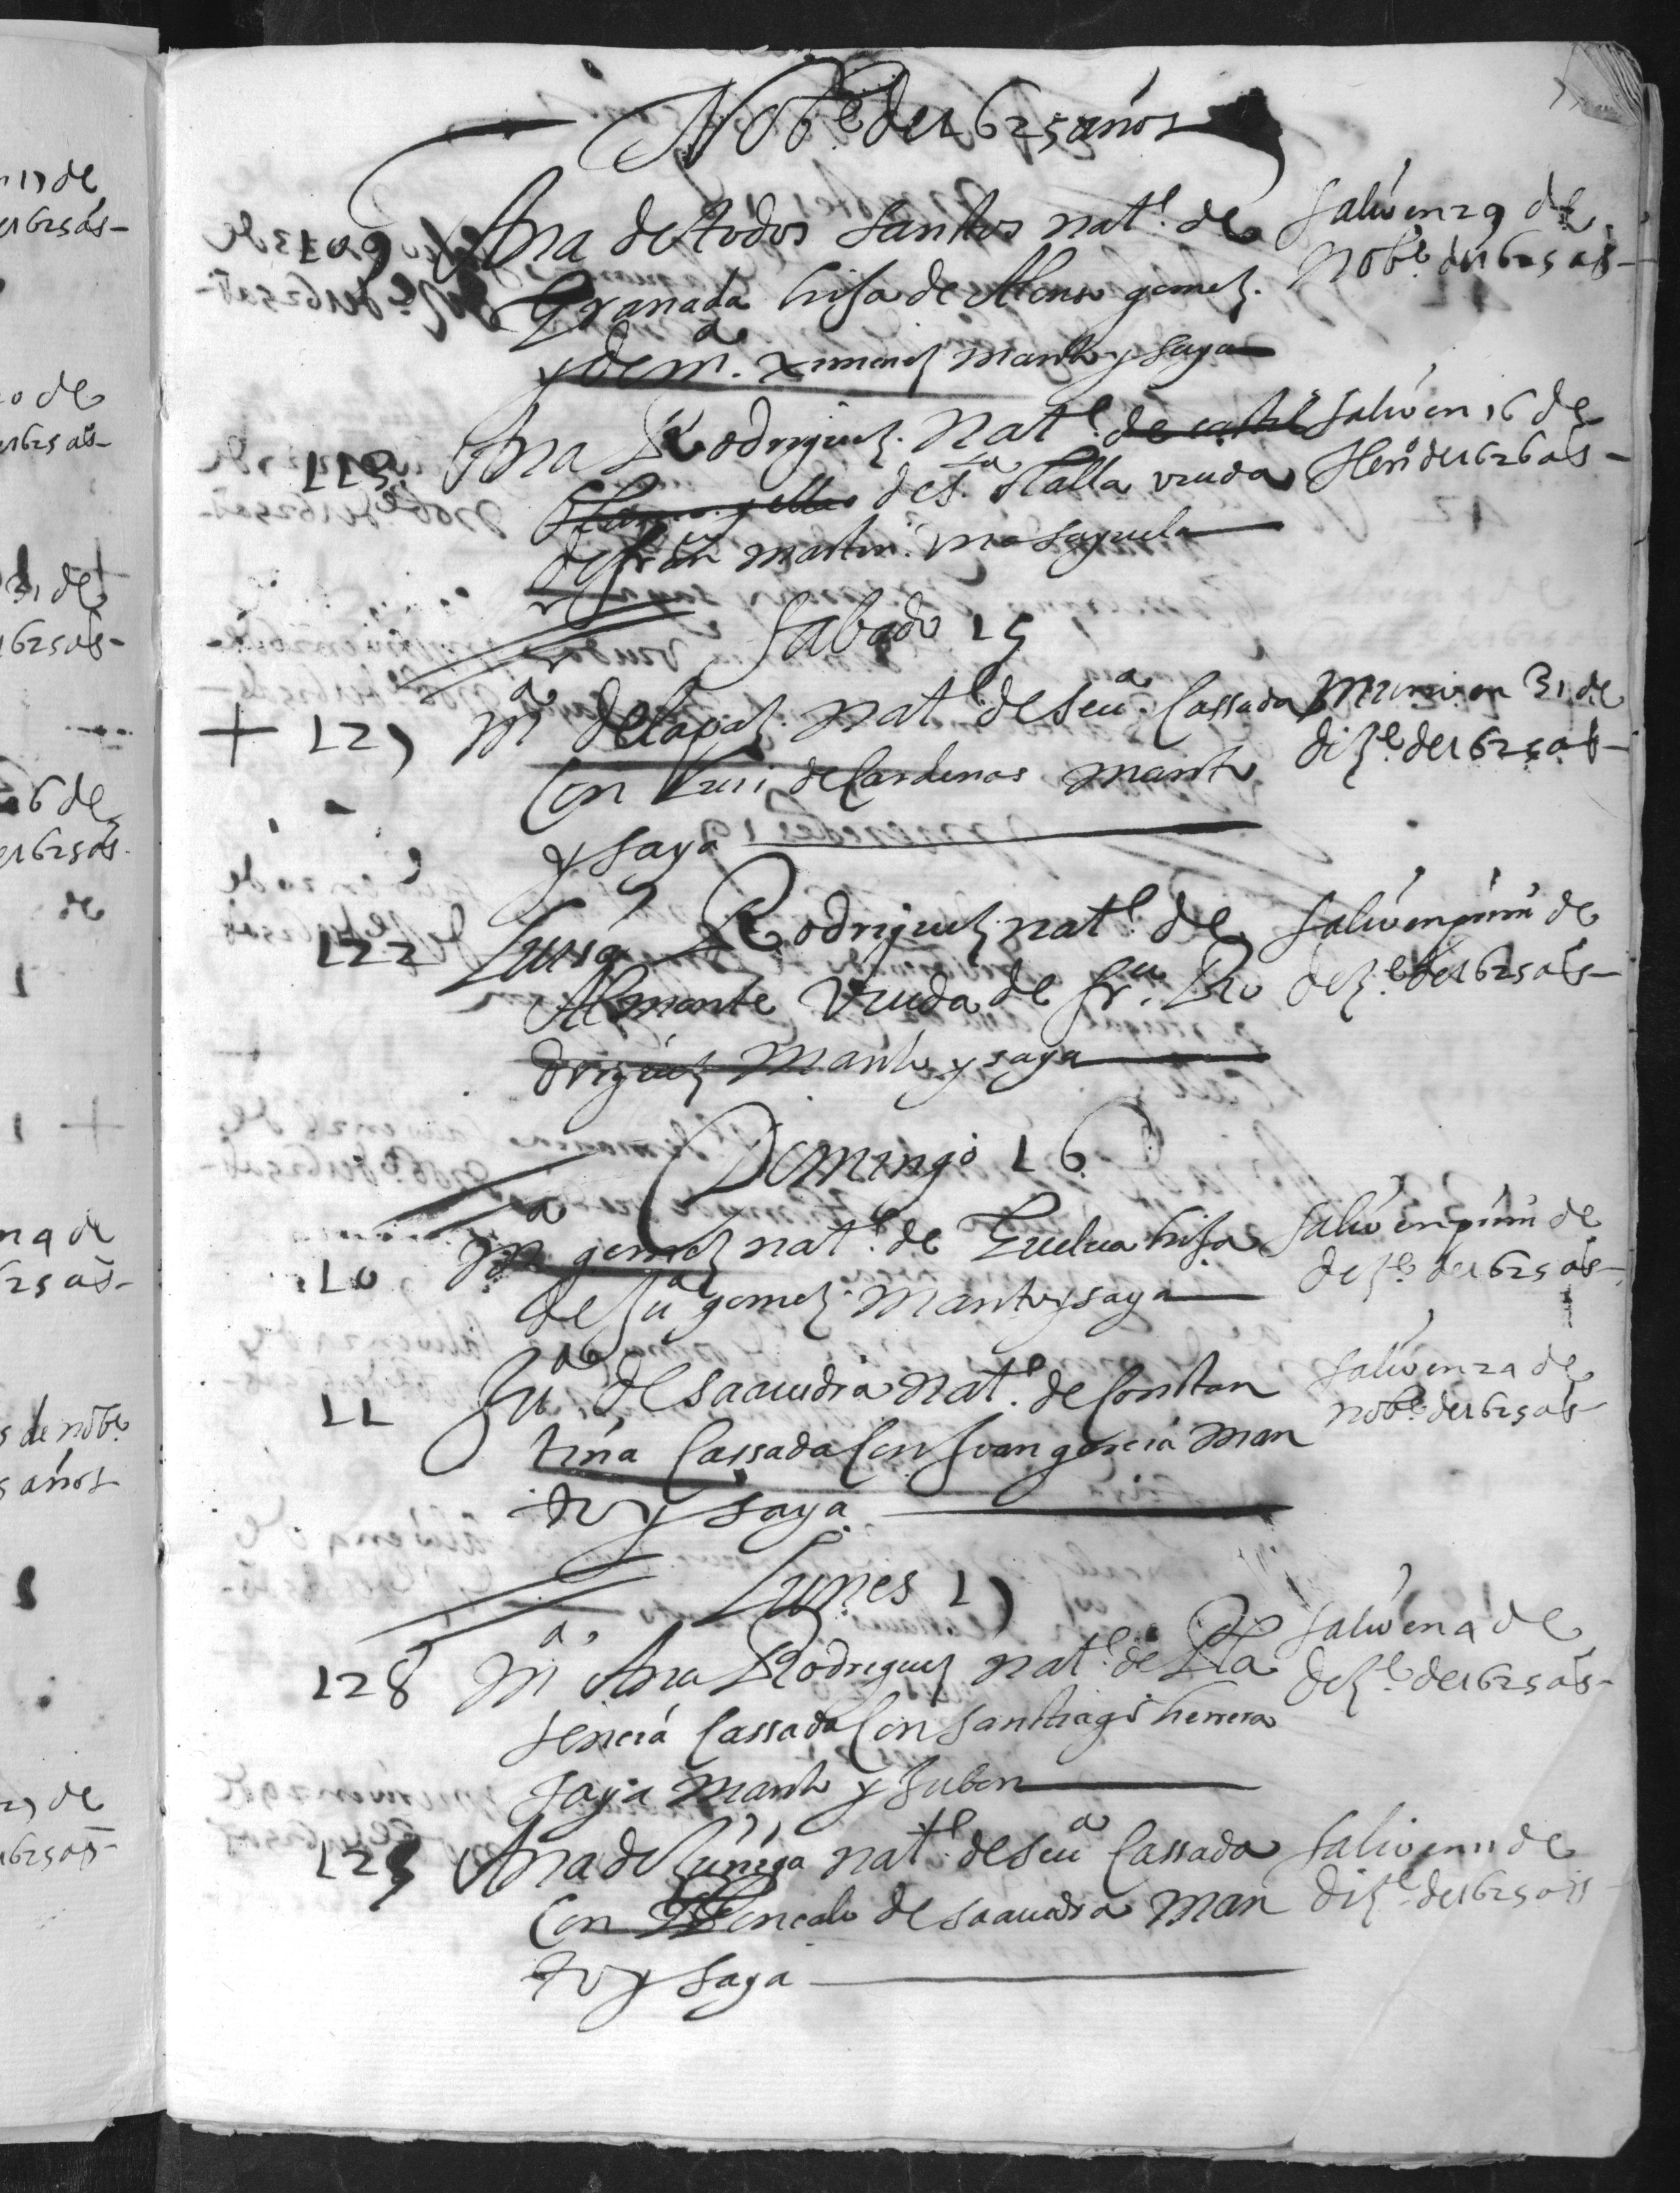 Nobe de 1625 años
109 Ana de todos santos natl. de
Granada hija de Alonso gomez.
y de ma. ximenez manto y saya
salio en 29 de
Nobe. de 1625 as
113 Ana Rodriguez. natl. de
de sta olalla viuda
de fran martin. una sayuela
salio en 16 de
Heno de 1626 as
Sabado 15
+ 127 ma de la paz. natl de seua. Cassada
Con Luis de Cardenas manto
y saya
Murio en 31 de
dize. de 1625 as
122 Luisa Rodriguez natl. de
Almonte viuda de frco. Ro
driguez manto y saya
salio en primo de
deze. de 1625 as
Domingo 16
10 ma gomez natl. de Huelua hija
de Jua gomez. manto y saya
salio en primo de
deze de 1625 as
11 Jua de saauedra natl. de Constan
tina Cassada Con Juan garcia man
to y saya
salio en 24 de
nobe. de 1625 as
Lunes 17
128 ma Ana Rodriguez natl. de Pla
sencia Cassada Con santiago herrera
saya manto y jubon
salio en 4 de
deze. de 1625 as
125 Ana de Cuniga natl. de seua Cassada
Con Goncalo de saauedra man
to y saya
salio en 11 de
dize. de 1625 as
17 de
de 1625 as
20 de
de 1625 as
31 de
1625 as
26 de
de 1625 as
de
en 4 de
1625 as
de nobe
años
27 de
1625 as